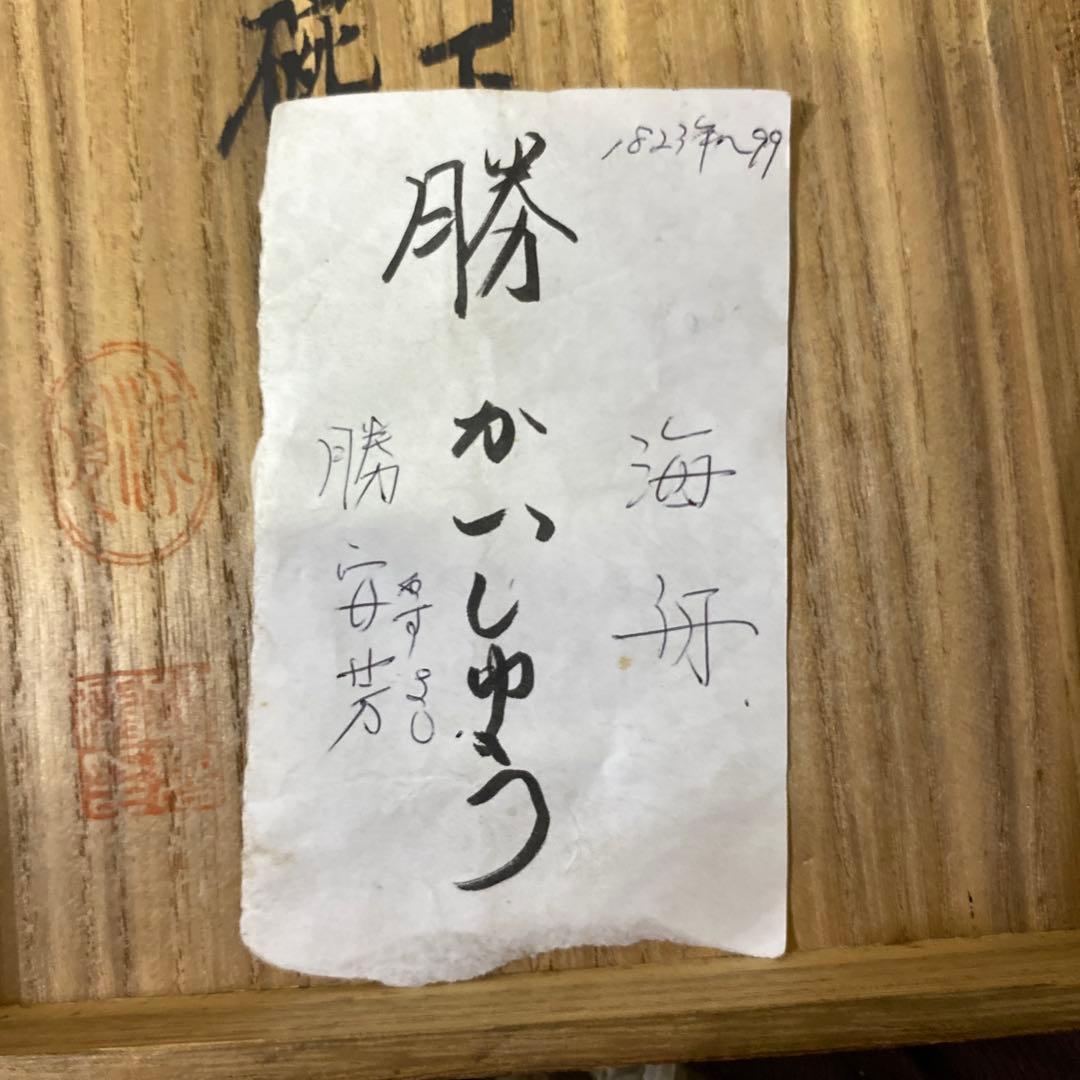 1823年〜99
勝
かいしゅう
海舟
勝安芳
やすよし